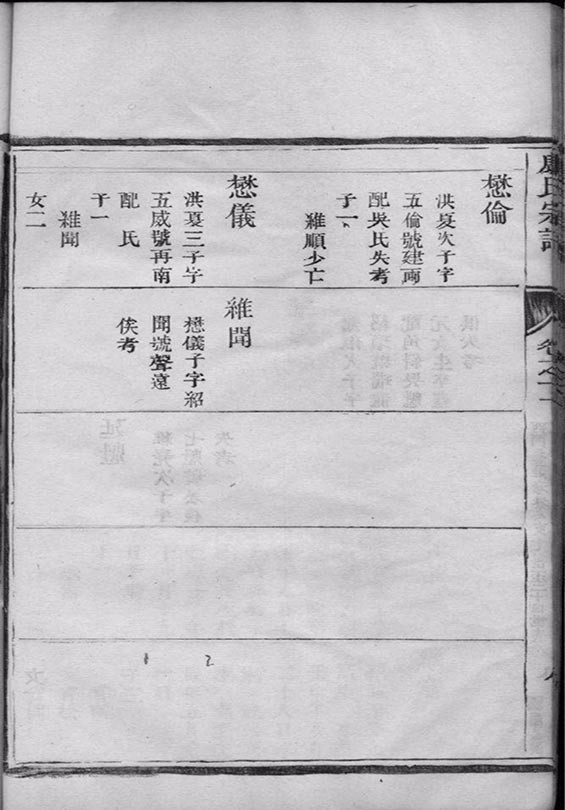 氏宗譜
卷之二
懋倫
洪夏次子字
五倫號建南
配吳氏失考
子一
維順少亡
懋儀
洪夏三子字
五威號再南
配 氏
子一
維聞
女二
維聞
懋儀子字紹
聞號聲遠
俟考